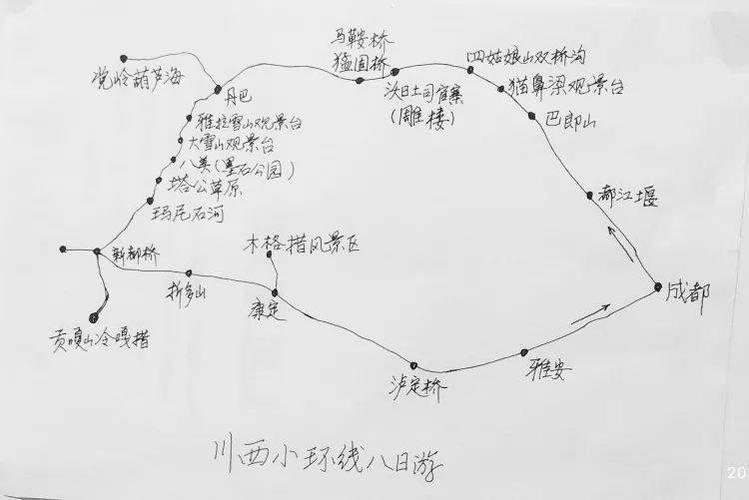 马鞍桥
猛固桥
四姑娘山双桥沟
党岭葫芦海
丹巴
沃日土司官寨
(雕楼)
猫鼻梁观景台
巴郎山
雅拉雪山观景台
大雪山观景台
八美(墨石公园)
塔公草原
玛尼石河
都江堰
新都桥
木格措风景区
折多山
康定
成都
贡嘎山冷嘎措
泸定桥
雅安
川西小环线八日游
20